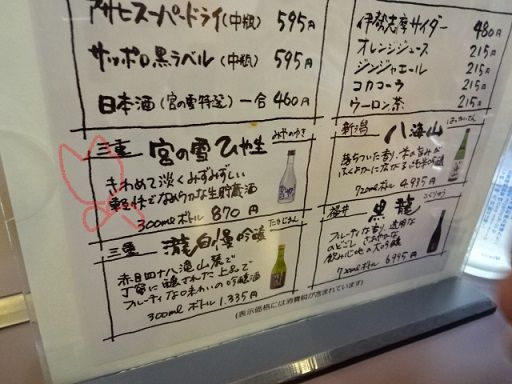 アサヒスーパードライ(中瓶) 595円
サッポロ黒ラベル(中瓶) 595円
日本酒(宮の雪特選)一合 460円
伊勢志摩サイダー 480円
オレンジジュース 215円
ジンジャエール 215円
コカコーラ 215円
ウーロン茶 215円
三重 宮の雪 ひや生 みやのゆき
きわめて淡くみずみずしい
軽快でなめらかな生貯蔵酒
300mlボトル 870円
新潟 八海山 はっかいさん
落ちついた香り、米の旨みが
720mlボトル 4,935円
三重 瀧自慢 吟醸 たきじまん
赤目四十八滝山麓で
丁寧に醸された上品で
フルーティな味わいの吟醸酒
300mlボトル 1,335円
福井 黒龍 こくりゅう
フルーティな香り、透明な
のどごし、さわやかな
飲み心地の大吟醸
720mlボトル 6,995円
(表示価格には消費税が含まれています)